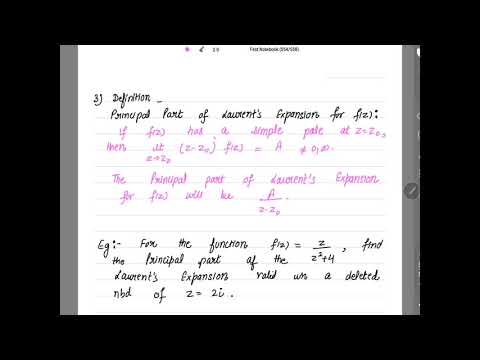 First Notebook (554/558)
3) Definition -
Principal Part of Laurent's Expansion for f(z):
If f(z) has a simple pole at z=z₀,
then lt z→z₀ (z-z₀) f(z) = A ≠ 0,∞.
The Principal part of Laurent's Expansion
for f(z) will be A/z-z₀
Eg:- For the function f(z) = z/z²+4, find
the Principal part of the
Laurent's Expansion valid in a deleted
nbd of z = 2i.